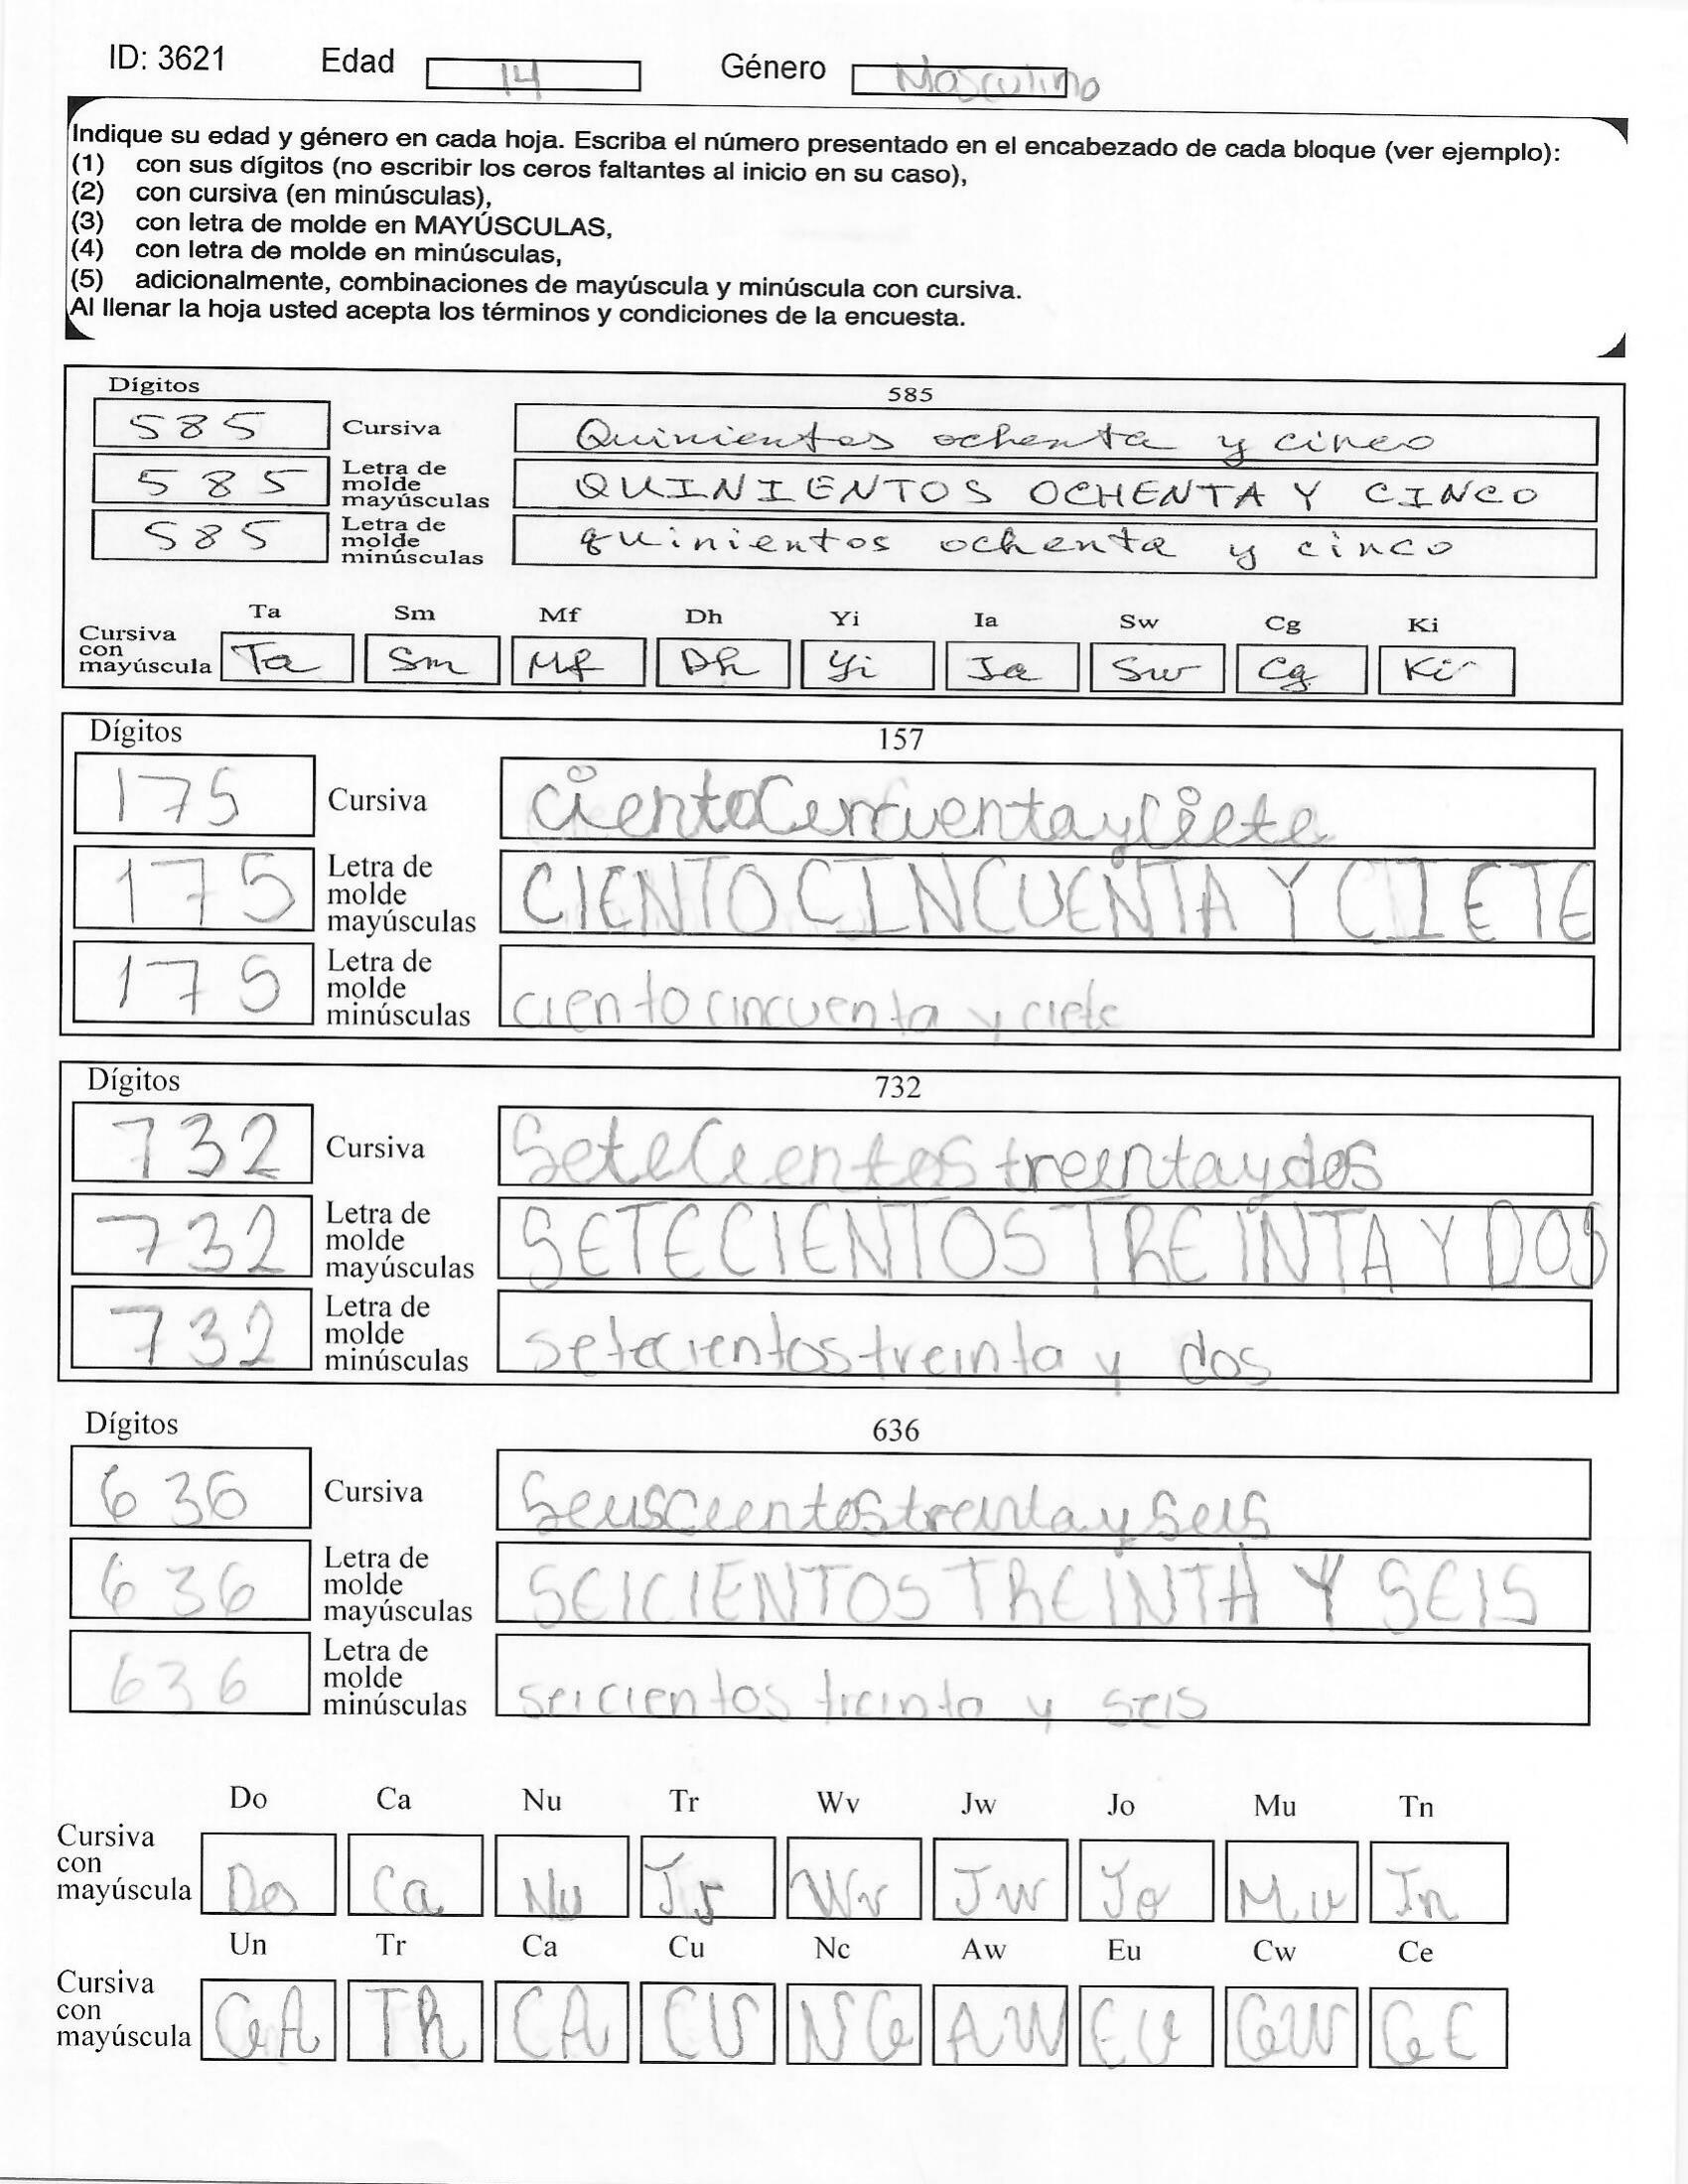 ID: 3621 Edad 14 Género Masculino
Indique su edad y género en cada hoja. Escriba el número presentado en el encabezado de cada bloque (ver ejemplo):
(1) con sus dígitos (no escribir los ceros faltantes al inicio en su caso),
(2) con cursiva (en minúsculas),
(3) con letra de molde en MAYÚSCULAS,
(4) con letra de molde en minúsculas,
(5) adicionalmente, combinaciones de mayúscula y minúscula con cursiva.
Al llenar la hoja usted acepta los términos y condiciones de la encuesta.
Dígitos 585
585 Cursiva Quinientos ochenta y cinco
585 Letra de molde mayúsculas QUINIENTOS OCHENTA Y CINCO
585 Letra de molde minúsculas quinientos ochenta y cinco
Ta Sm Mf Dh Yi Ia Sw Cg Ki
Cursiva con mayúscula Ta Sm Mf Dh Yi Ia Sw Cg Ki
Dígitos 157
175 Cursiva cientoCincuentayCiete
175 Letra de molde mayúsculas CIENTO CINCUENTA Y CIETE
175 Letra de molde minúsculas ciento cincuenta y ciete
Dígitos 732
732 Cursiva SeteCientos treintaydos
732 Letra de molde mayúsculas SETECIENTOS TREINTA Y DOS
732 Letra de molde minúsculas setecientos treinta y dos
Dígitos 636
636 Cursiva SeisCientos treintay Seis
636 Letra de molde mayúsculas SEICIENTOS TREINTA Y SEIS
636 Letra de molde minúsculas seicientos treinta y seis
Do Ca Nu Tr Wv Jw Jo Mu Tn
Cursiva con mayúscula Do Ca Nu Tr Wv Jw Jo Mu Tn
Un Tr Ca Cu Nc Aw Eu Cw Ce
Cursiva con mayúscula CA TR CA CU NC AW EU CW CE